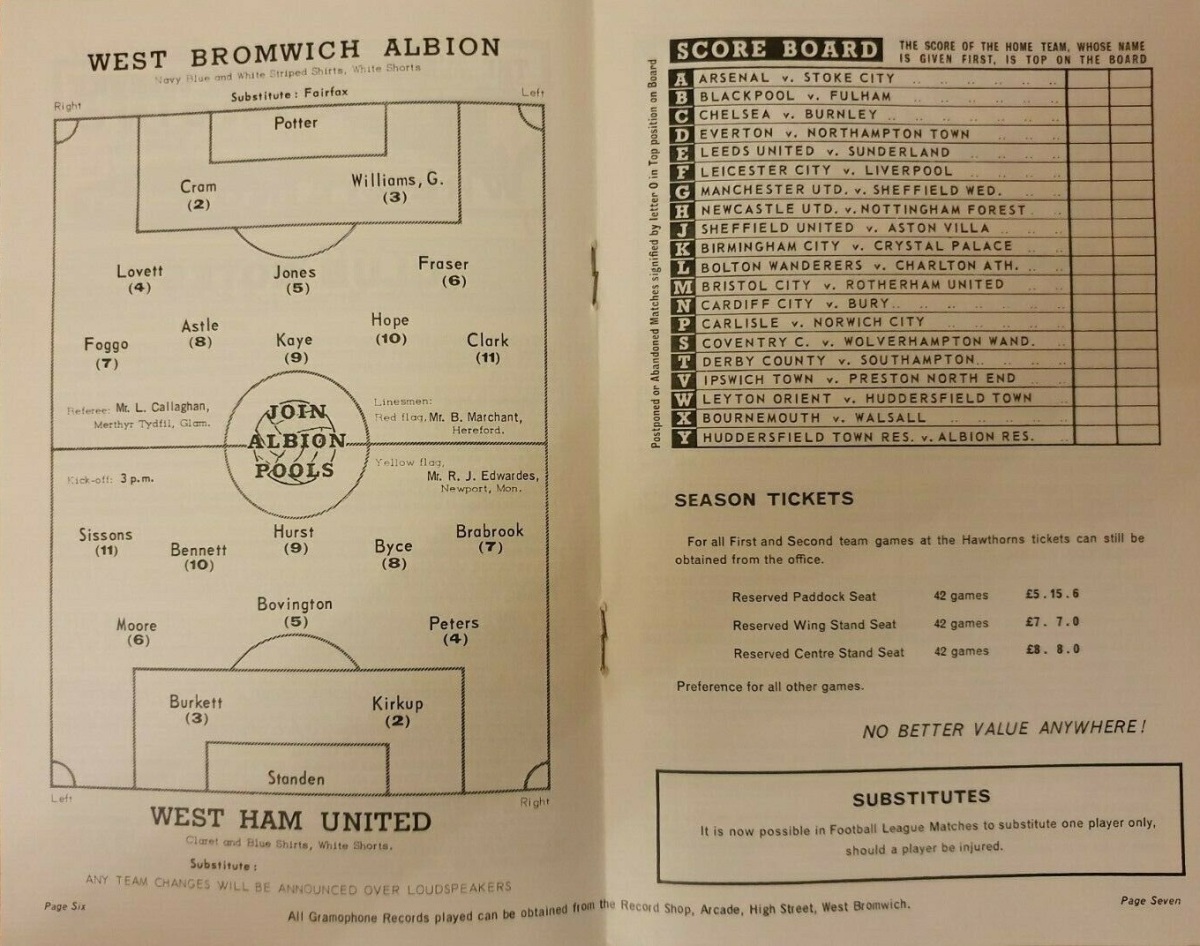 WEST BROMWICH ALBION
Navy Blue and White Striped Shirts, White Shorts
Substitute: Fairfax
Right
Left
Potter
Cram
(2)
Williams, G.
(3)
Lovett
(4)
Jones
(5)
Fraser
(6)
Foggo
(7)
Astle
(8)
Kaye
(9)
Hope
(10)
Clark
(11)
Referee: Mr. L. Callaghan,
Merthyr Tydfil, Glam.
Linesmen:
Red flag, Mr. B. Marchant,
Hereford.
JOIN
ALBION
POOLS
Kick-off: 3 p.m.
Yellow flag,
Mr. R. J. Edwardes,
Newport, Mon.
Sissons
(11)
Bennett
(10)
Hurst
(9)
Byce
(8)
Brabrook
(7)
Moore
(6)
Bovington
(5)
Peters
(4)
Burkett
(3)
Kirkup
(2)
Standen
Left
Right
WEST HAM UNITED
Claret and Blue Shirts, White Shorts.
Substitute:
ANY TEAM CHANGES WILL BE ANNOUNCED OVER LOUDSPEAKERS
Page Six
SCORE BOARD
THE SCORE OF THE HOME TEAM, WHOSE NAME
IS GIVEN FIRST, IS TOP ON THE BOARD
Postponed or Abandoned Matches signified by letter O in Top position on Board
A ARSENAL v. STOKE CITY
B BLACKPOOL v. FULHAM
C CHELSEA v. BURNLEY
D EVERTON v. NORTHAMPTON TOWN
E LEEDS UNITED v. SUNDERLAND
F LEICESTER CITY v. LIVERPOOL
G MANCHESTER UTD. v. SHEFFIELD WED.
H NEWCASTLE UTD. v. NOTTINGHAM FOREST
J SHEFFIELD UNITED v. ASTON VILLA
K BIRMINGHAM CITY v. CRYSTAL PALACE
L BOLTON WANDERERS v. CHARLTON ATH.
M BRISTOL CITY v. ROTHERHAM UNITED
N CARDIFF CITY v. BURY
P CARLISLE v. NORWICH CITY
S COVENTRY C. v. WOLVERHAMPTON WAND.
T DERBY COUNTY v. SOUTHAMPTON
V IPSWICH TOWN v. PRESTON NORTH END
W LEYTON ORIENT v. HUDDERSFIELD TOWN
X BOURNEMOUTH v. WALSALL
Y HUDDERSFIELD TOWN RES. v. ALBION RES.
SEASON TICKETS
For all First and Second team games at the Hawthorns tickets can still be
obtained from the office.
Reserved Paddock Seat 42 games £5.15.6
Reserved Wing Stand Seat 42 games £7. 7.0
Reserved Centre Stand Seat 42 games £8. 8.0
Preference for all other games.
NO BETTER VALUE ANYWHERE!
SUBSTITUTES
It is now possible in Football League Matches to substitute one player only,
should a player be injured.
Page Seven
All Gramophone Records played can be obtained from the Record Shop, Arcade, High Street, West Bromwich.